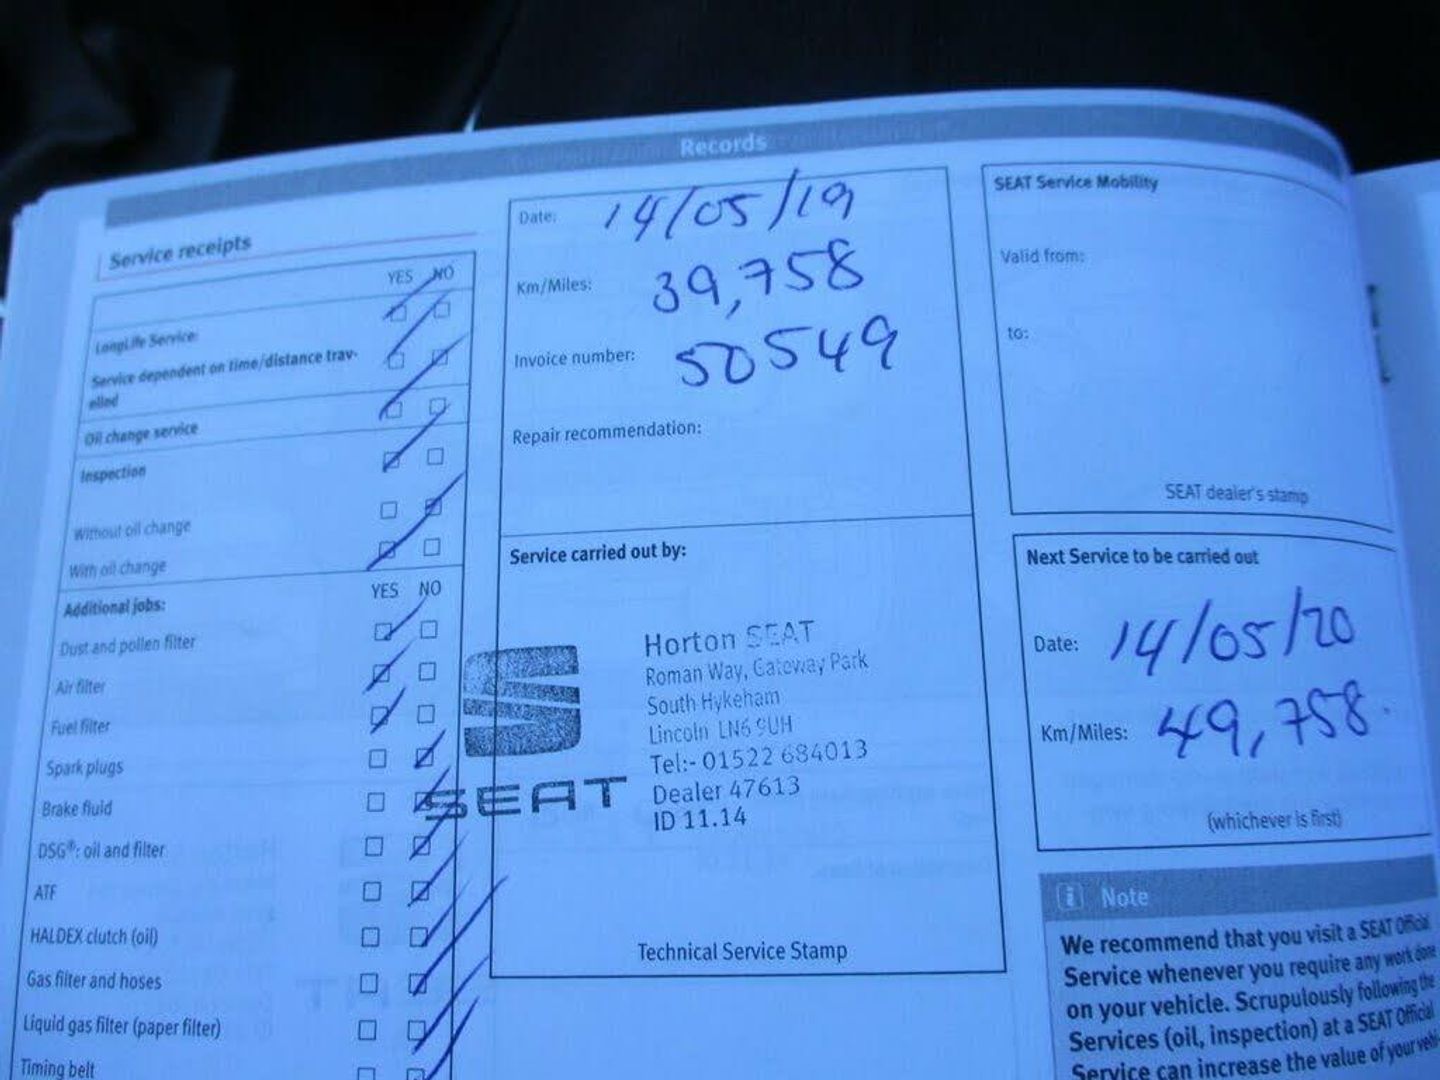 Records
Service receipts
YES NO
LongLife Service:
Service dependent on time/distance trav-
elled
Oil change service
Inspection
Without oil change
With oil change
Additional jobs: YES NO
Dust and pollen filter
Air filter
Fuel filter
Spark plugs
Brake fluid
DSG®: oil and filter
ATF
HALDEX clutch (oil)
Gas filter and hoses
Liquid gas filter (paper filter)
Timing belt
Date: 14/05/19
Km/Miles: 39,758
Invoice number: 50549
Repair recommendation:
Service carried out by:
SEAT
Horton SEAT
Roman Way, Gateway Park
South Hykeham
Lincoln LN6 9UH
Tel:- 01522 684013
Dealer 47613
ID 11.14
Technical Service Stamp
SEAT Service Mobility
Valid from:
to:
SEAT dealer's stamp
Next Service to be carried out
Date: 14/05/20
Km/Miles: 49,758.
(whichever is first)
i Note
We recommend that you visit a SEAT Official
Service whenever you require any work done
on your vehicle. Scrupulously following the
Services (oil, inspection) at a SEAT Official
Service can increase the value of your vehi-